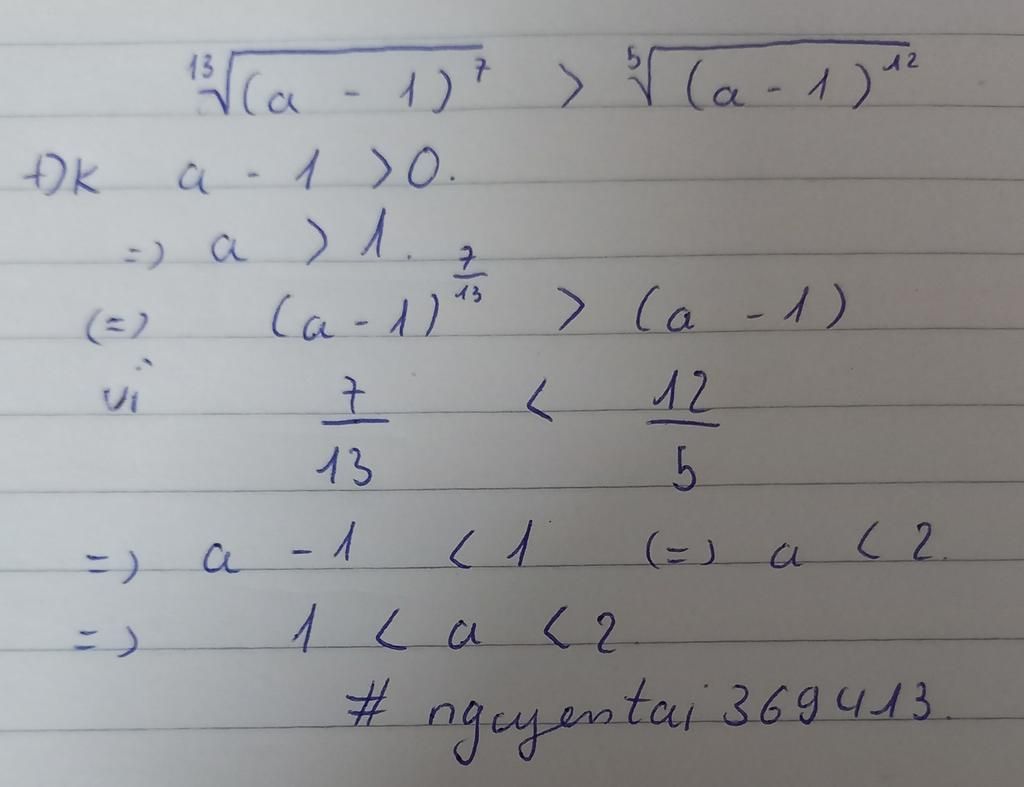 ¹³√(a - 1)⁷ > ⁵√(a - 1)¹²
ĐK a - 1 > 0.
=) a > 1.
(=) (a - 1)^(7/13) > (a - 1)
vì 7/13 < 12/5
=) a - 1 < 1 (=) a < 2.
=) 1 < a < 2
# nguyentai 369413.